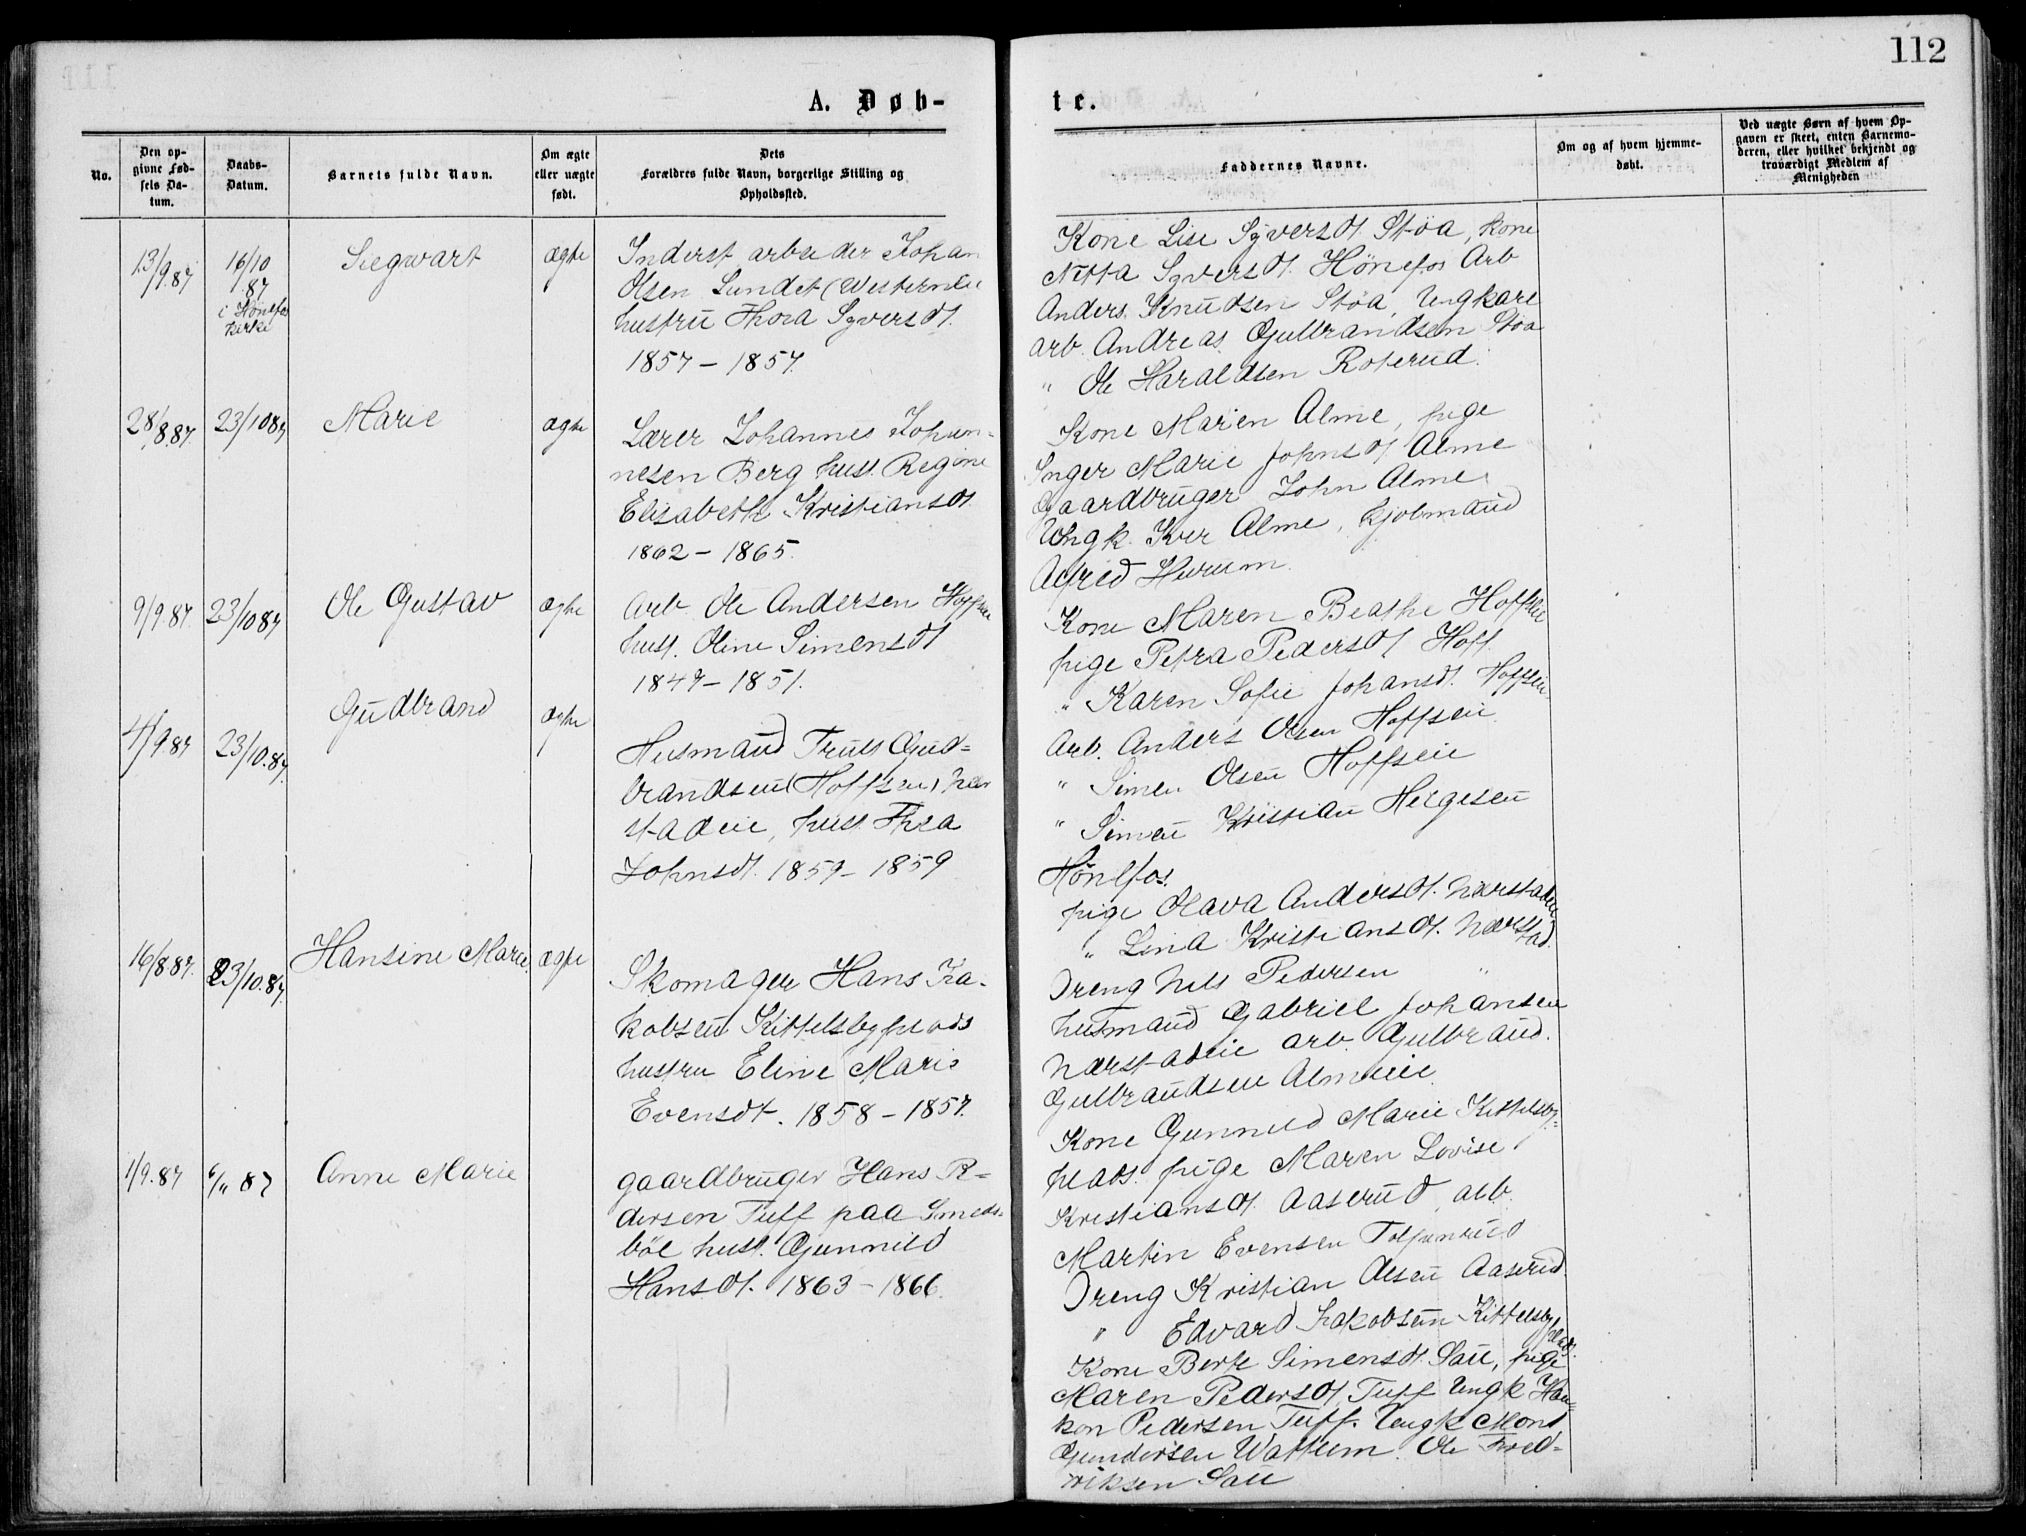 112
A. Døb-
te.
No.
Den op-
givne Fød-
sels Da-
tum.
Daabs-
Datum.
Barnets fulde Navn.
Om ægte
eller uægte
født.
Dets
Forældres fulde Navn, borgerlige Stilling og
Opholdssted.
Faddernes Navne.
Om og af hvem hjemme-
døbt.
Ved uægte Børn af hvem Op-
gaven er skeet, enten Barnemo-
deren, eller hvilket bekjendt og
troværdigt Medlem af
Menigheden
13/9.87
16/10
87
i Hønefos
kirke
Siegwart
ægte
Inderst arbeider Johan
Olsen Lundet (Westernlie
hustru Thora Syversdt.
1857 – 1857.
Kone Lise Syversdt. Støa, kone
Netta Syversdt. Hönefos Arb
Anders Knudsen Støa, Ungkarl
arb. Andreas Gulbrandsen Støa
" Ole Haraldsen Roterud.
28/8.87.
23/1087
Marie
ægte
Lærer Johannes Johan-
nesen Berg hust. Regine
Elisabeth Kristiansdt.
1862 – 1865.
Kone Maren Alme, pige
Inger Marie Johnsdt Alme
Gaardbruger John Alme
Ungk. Iver Alme, kjøbmand
Alfred Hurum.
9/9.87.
23/1087
Ole Gustav
ægte
Arb. Ole Andersen Hoffseie
hust. Oline Simensdt
1847 – 1851.
Kone Maren Beathe Hoffseie
pige Petra Pedersdt Hoff.
" Karen Sofie Johansdt. Hoffseie
Arb. Anders Olsen Hoffseie
" Simen Olsen Hoffseie
" Simen Kristian Helgesen
Hönefos.
4/9 87
23/10.87.
Gudbrand
ægte
Husmand Truls Gud-
brandsen (Hoffseie) Nær
stadeie, hust. Thea
Johnsdt. 1859 – 1859
pige Olava Andersdt. Nærstadeie
" Lina Kristiansdt. Nærstad.
Dreng Nels Pedersen "
husmand Gabriel Johansen
Nærstadeie arb. Gulbrand.
Gulbrandsen Almeeie.
16/8.87.
23/10.87.
Hansine Marie
ægte
Skomager Hans Ja-
kobsen Kittelsbyplads
hustru Eline Marie
Evensdt. 1858 – 1857.
Kone Gunnild Marie Kittelsby-
plads. pige Maren Lovise
Kristiansdt. Aaserud, arb.
Martin Evensen
Dreng Kristian Olsen Aaserud.
" Edvard Jakobsen Kittelsby
plads.
1/9.87
6/11 87
Anne Marie
gaardbruger Hans P-
dersen Tuff paa Smeds-
böl hust. Gunnild
Hansdt. 1863 – 1866.
Kone Berte Simensdt. Sau, pige
Maren Pedersdt Tuff Ungk Haa-
kon Pedersen Tuff. Ungk Mons
Gundersen Wattum. Ole Fred-
riksen Sau